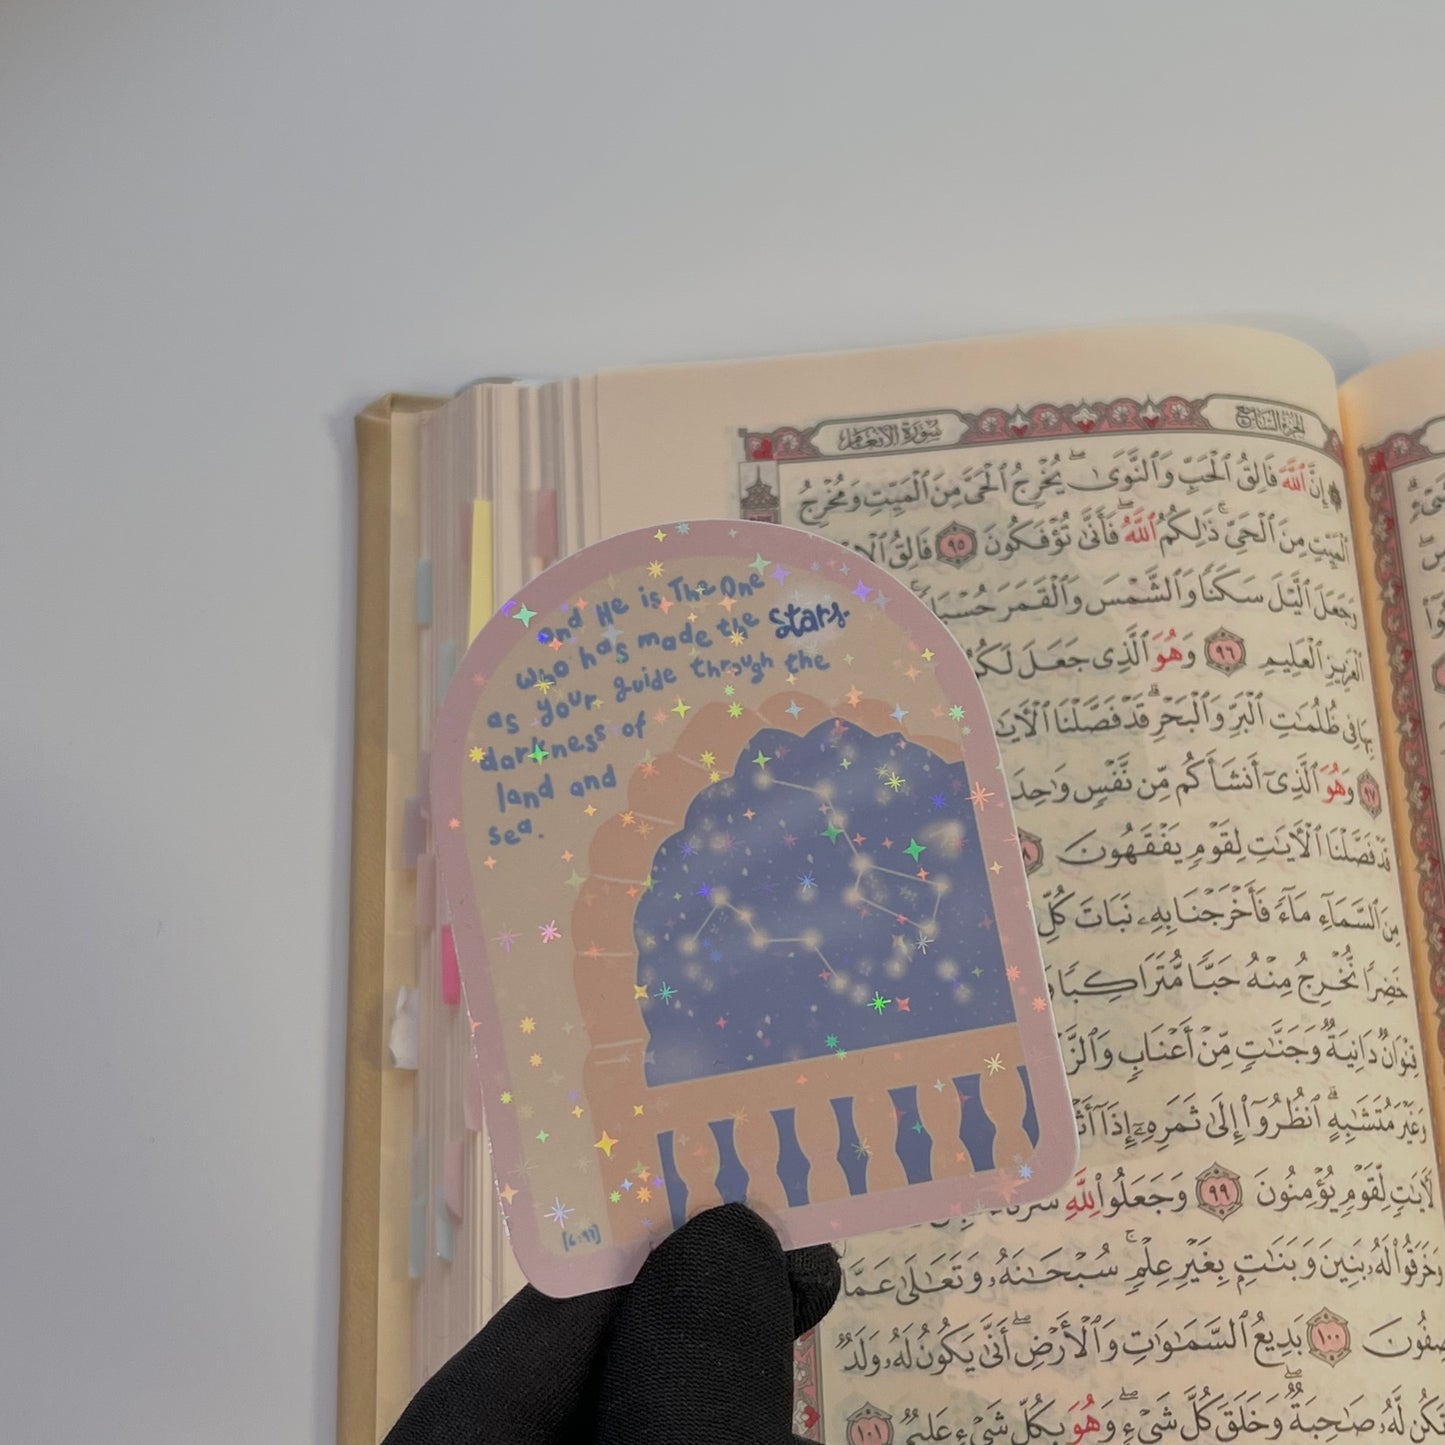 and He is The One
who has made the stars
as your guide through the
darkness of
land and
sea.
[6:97]
سورة الأنعام
الجزء السابع
إِنَّ ٱللَّهَ فَالِقُ ٱلْحَبِّ وَٱلنَّوَىٰ ۖ يُخْرِجُ ٱلْحَىَّ مِنَ ٱلْمَيِّتِ وَمُخْرِجُ
ٱلْمَيِّتِ مِنَ ٱلْحَىِّ ۚ ذَٰلِكُمُ ٱللَّهُ ۖ فَأَنَّىٰ تُؤْفَكُونَ ٩٥ فَالِقُ
وَجَعَلَ ٱلَّيْلَ سَكَنًا وَٱلشَّمْسَ وَٱلْقَمَرَ
ٱلْعَزِيزِ ٱلْعَلِيمِ ٩٦ وَهُوَ ٱلَّذِى جَعَلَ لَكُمُ
بِهَا فِى ظُلُمَٰتِ ٱلْبَرِّ وَٱلْبَحْرِ ۗ قَدْ فَصَّلْنَا
٩٧ وَهُوَ ٱلَّذِىٓ أَنشَأَكُم مِّن نَّفْسٍ
قَدْ فَصَّلْنَا ٱلْـَٔايَٰتِ لِقَوْمٍ يَفْقَهُونَ
مِنَ ٱلسَّمَآءِ مَآءً فَأَخْرَجْنَا بِهِۦ نَبَاتَ كُلِّ
خَضِرًا نُّخْرِجُ مِنْهُ حَبًّا مُّتَرَاكِبًا
قِنْوَانٌ دَانِيَةٌ وَجَنَّٰتٍ مِّنْ أَعْنَابٍ
وَغَيْرَ مُتَشَٰبِهٍ ۗ ٱنظُرُوٓا۟ إِلَىٰ ثَمَرِهِۦٓ إِذَآ
لَـَٔايَٰتٍ لِّقَوْمٍ يُؤْمِنُونَ ٩٩ وَجَعَلُوا۟ لِلَّهِ
وَخَرَقُوا۟ لَهُۥ بَنِينَ وَبَنَٰتٍۭ بِغَيْرِ عِلْمٍ ۚ سُبْحَٰنَهُۥ وَتَعَٰلَىٰ عَمَّا
يَصِفُونَ ١٠٠ بَدِيعُ ٱلسَّمَٰوَٰتِ وَٱلْأَرْضِ ۖ أَنَّىٰ يَكُونُ لَهُۥ وَلَدٌ
تَكُن لَّهُۥ صَٰحِبَةٌ ۖ وَخَلَقَ كُلَّ شَىْءٍ ۖ وَهُوَ بِكُلِّ شَىْءٍ عَلِيمٌ ١٠١